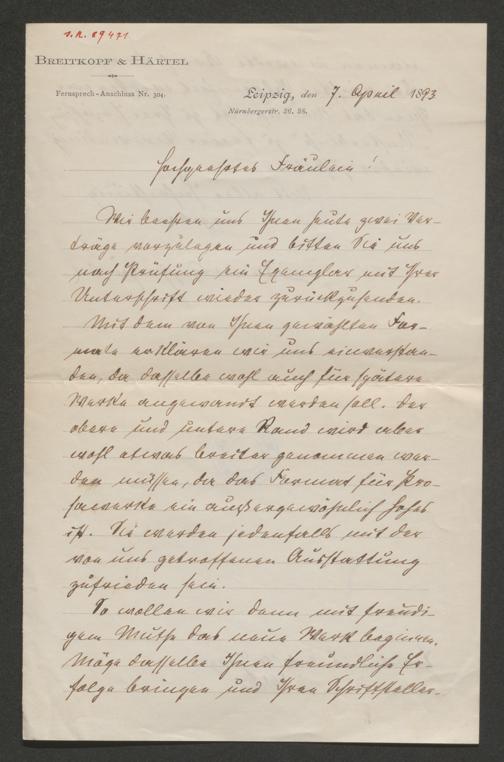 I.N. 89471
BREITKOPF & HÄRTEL
Fernsprech-Anschluss Nr. 304.
Leipzig, den 7. April 1893
Nürnbergerstr. 36. 38.
Hochgeehrtes Fräulein!
Wir beehren uns Ihnen heute zwei Ver-
träge vorzulegen und bitten Sie uns
nach Prüfung ein Exemplar mit Ihrer
Unterschrift wieder zurückzusenden.
Mit dem von Ihnen gewählten For-
mate erklären wir uns einverstan-
den, da dasselbe wohl auch für spätere
Werke angewandt werden soll. Der
obere und untere Rand wird aber
wohl etwas breiter genommen wer-
den müssen, da das Format für Pro-
sawerke ein außergewöhnlich hohes
ist. Sie werden jedenfalls mit der
von uns getroffenen Ausstattung
zufrieden sein.
So wollen wir denn mit freudi-
gem Muthe das neue Werk beginnen.
Möge dasselbe Ihnen freundliche Er-
folge bringen und Ihren Schriftsteller-